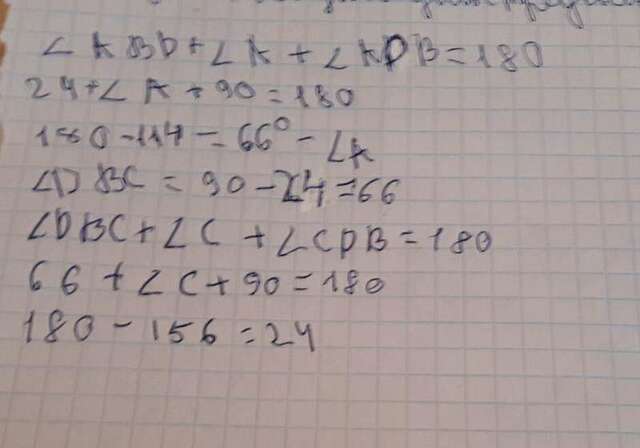 ∠ABD+∠A+∠ADB=180
24+∠A+90=180
180-114=66° - ∠A
∠DBC=90-24=66
∠DBC+∠C+∠CDB=180
66+∠C+90=180
180-156=24